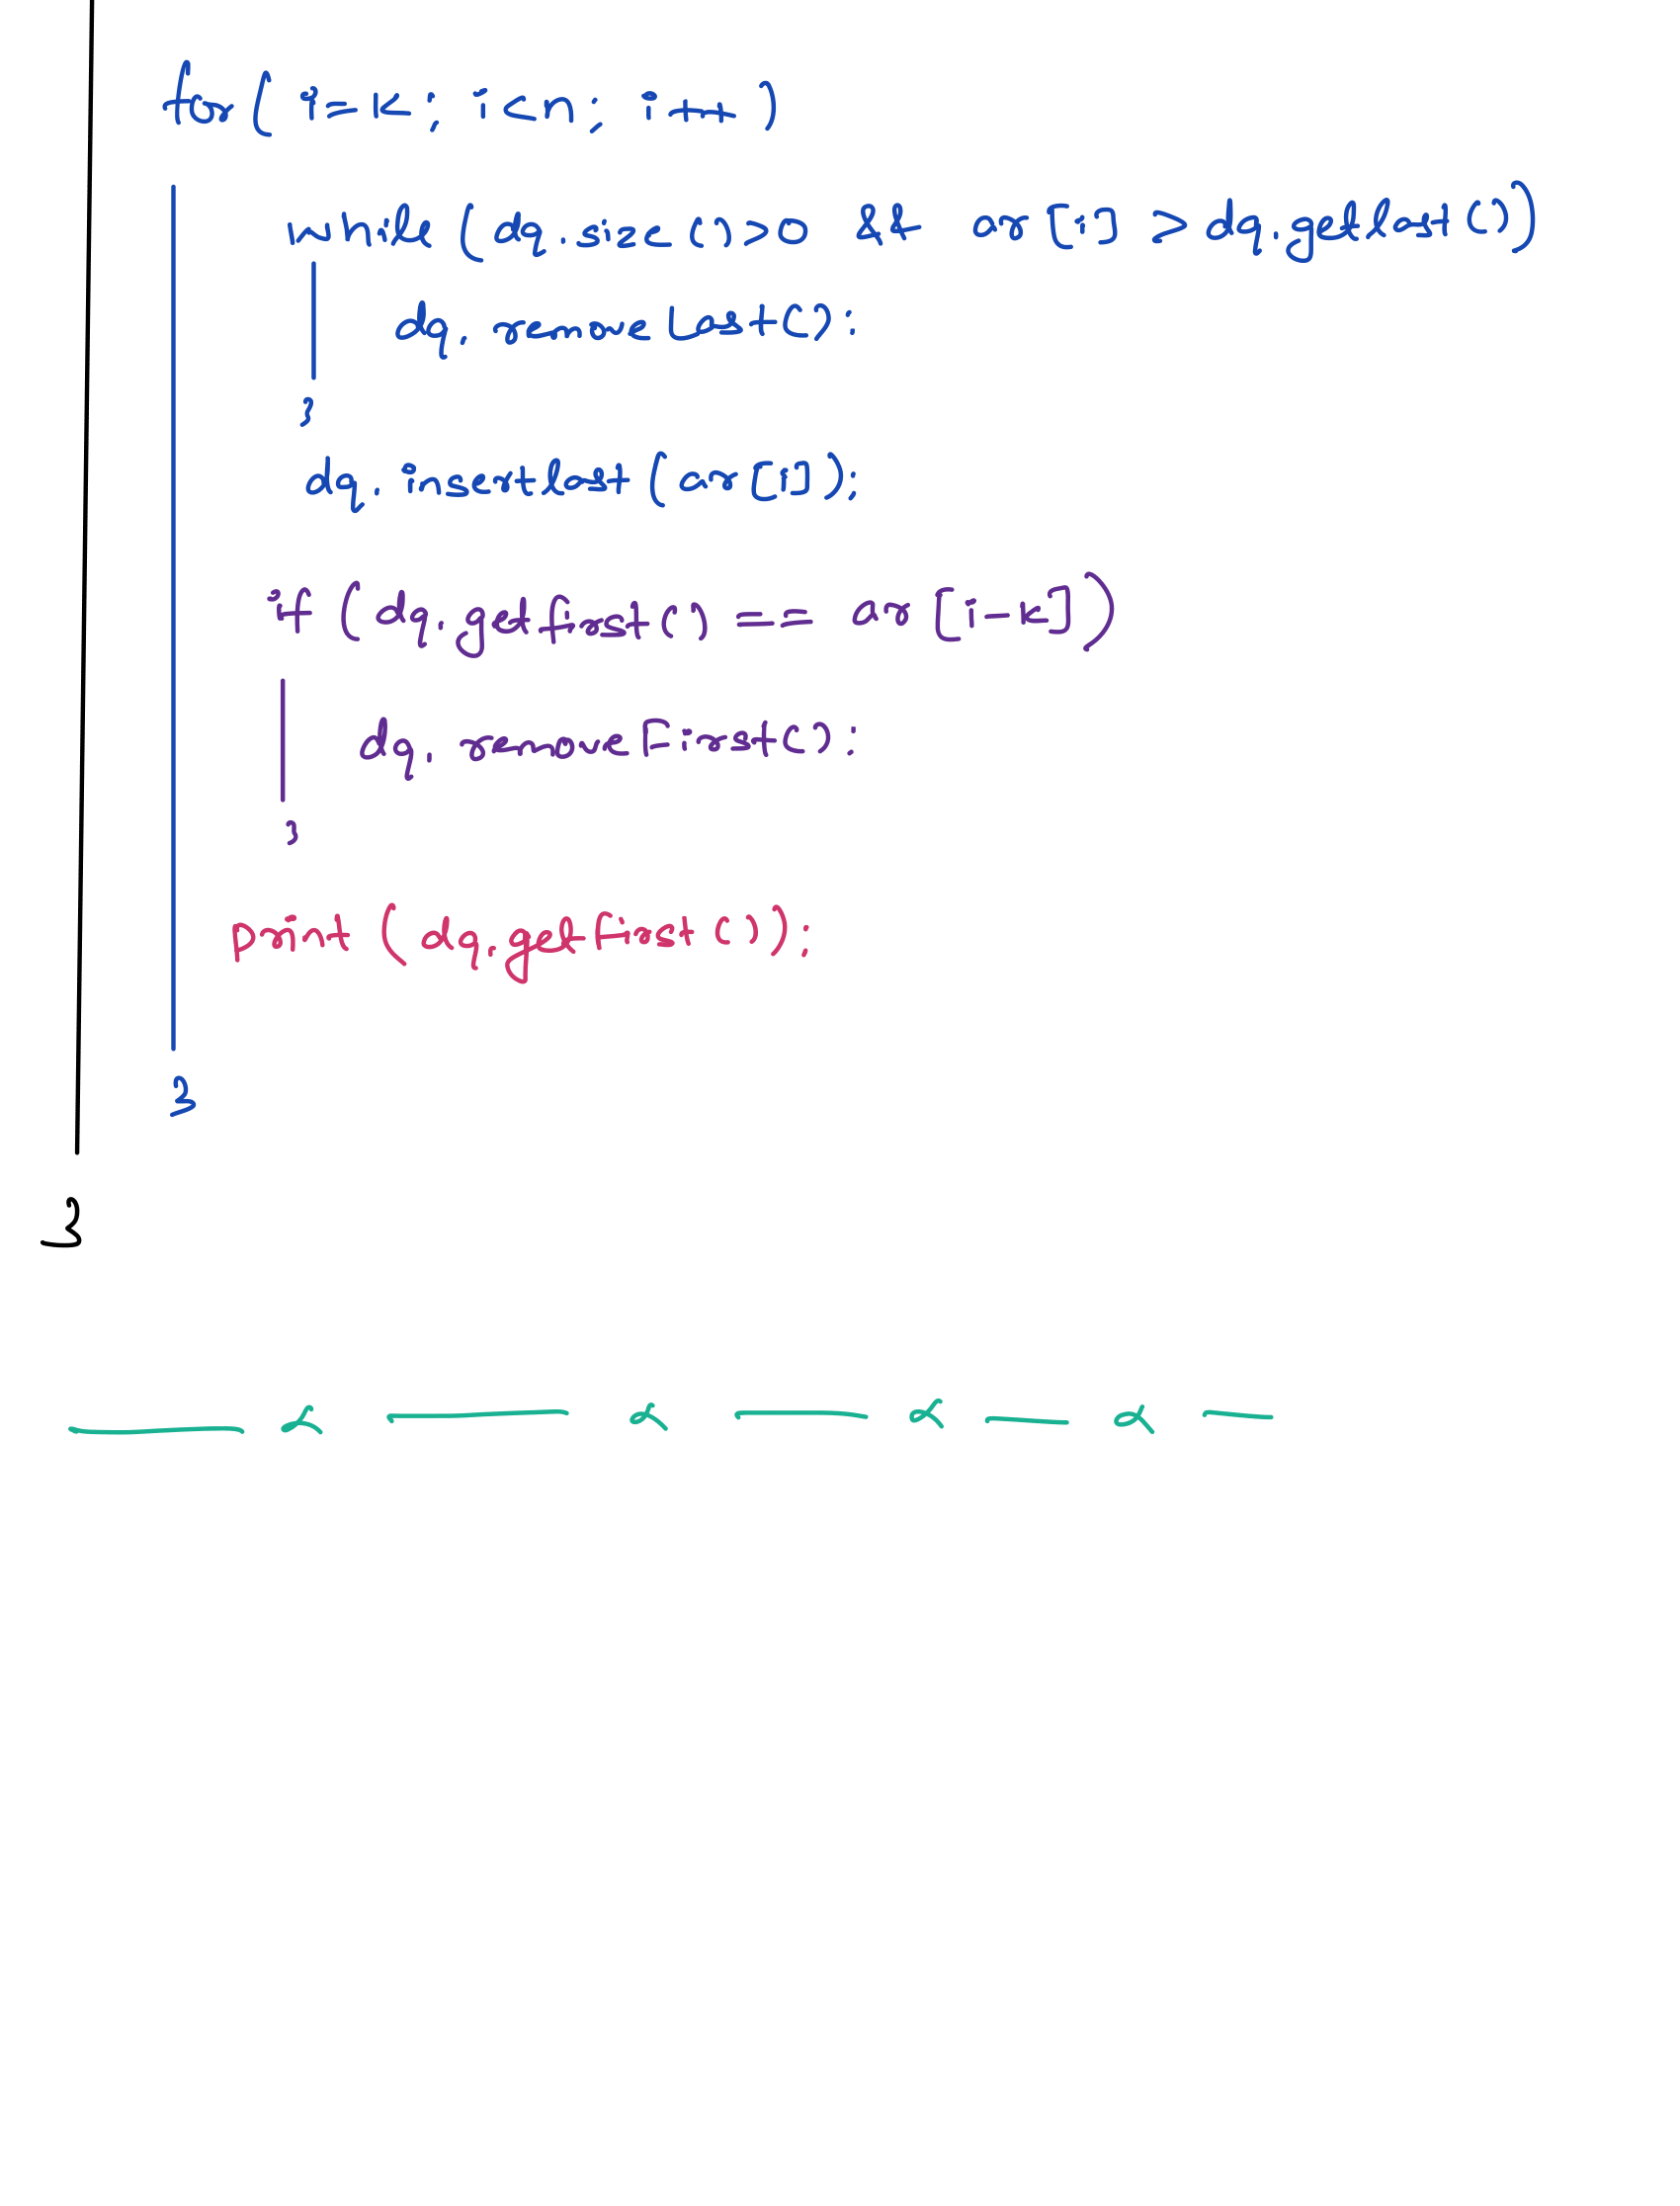 for( i=k; i<n; i++ )
while (dq.size()>0 && ar[i] > dq.getlast())
dq. removeLast():
}
dq. insertlast (ar[i]);
if (dq.getfirst() == ar[i-k])
dq. removeFirst():
}
print (dq.getfirst());
}
}